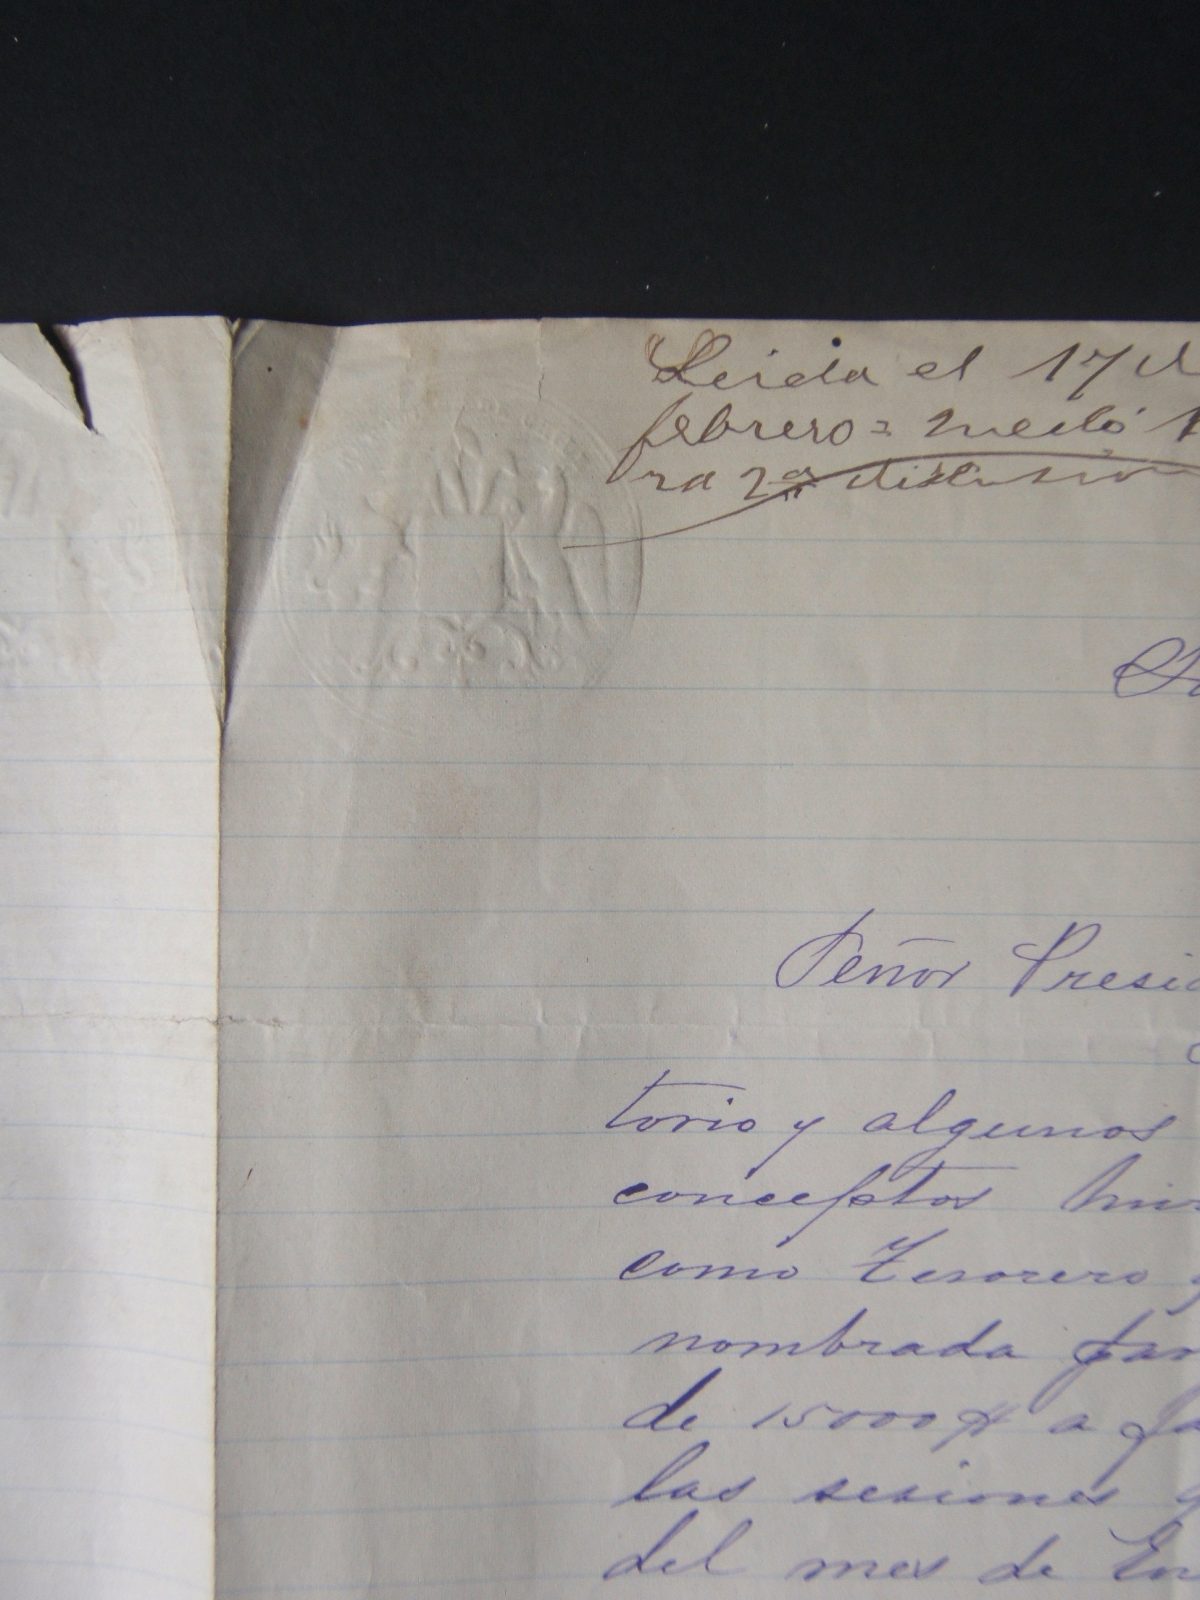 Leida el 17 d
febrero = quedó p
ra 2ª discusión
Señor Presid
torio y algunos
conceptos
como Tesorero
nombrada par
de 15000 a fa
las sesiones
del mes de En